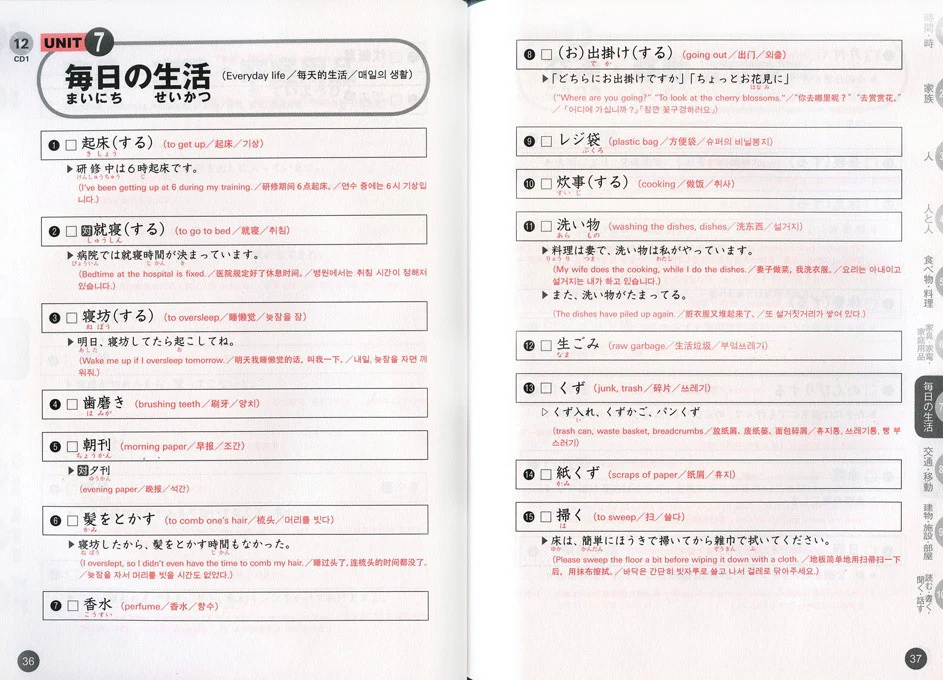 12
CD1
UNIT 7
毎日の生活
まいにち せいかつ
(Everyday life／每天的生活／매일의 생활)
❶ □ 起床(する) (to get up／起床／기상)
きしょう
▶研修中は6時起床です。
けんしゅうちゅう じ
(I've been getting up at 6 during my training.／研修期间6点起床。／연수 중에는 6시 기상입
니다.)
❷ □ 対就寝(する) (to go to bed／就寝／취침)
しゅうしん
▶病院では就寝時間が決まっています。
びょういん じかん き
(Bedtime at the hospital is fixed.／医院规定好了休息时间。／병원에서는 취침 시간이 정해져
있습니다.)
❸ □ 寝坊(する) (to oversleep／睡懒觉／늦잠을 잠)
ねぼう
▶明日、寝坊してたら起こしてね。
あした お
(Wake me up if I oversleep tomorrow.／明天我睡懒觉的话，叫我一下。／내일, 늦잠을 자면 깨
워줘.)
❹ □ 歯磨き (brushing teeth／刷牙／양치)
はみが
❺ □ 朝刊 (morning paper／早报／조간)
ちょうかん
▶対夕刊
ゆうかん
(evening paper／晚报／석간)
❻ □ 髪をとかす (to comb one's hair／梳头／머리를 빗다)
かみ
▶寝坊したから、髪をとかす時間もなかった。
ねぼう じかん
(I overslept, so I didn't even have the time to comb my hair.／睡过头了，连梳头的时间都没了。
／늦잠을 자서 머리를 빗을 시간도 없었다.)
❼ □ 香水 (perfume／香水／향수)
こうすい
36
❽ □ (お)出掛け(する) (going out／出门／외출)
でか
▶「どちらにお出掛けですか」「ちょっとお花見に」
はなみ
("Where are you going?" "To look at the cherry blossoms."／"你去哪里呢？" "去赏赏花。"
／「어디에 가십니까?」「잠깐 꽃구경하러요」)
❾ □ レジ袋 (plastic bag／方便袋／슈퍼의 비닐봉지)
ぶくろ
❿ □ 炊事(する) (cooking／做饭／취사)
すいじ
⓫ □ 洗い物 (washing the dishes, dishes／洗东西／설거지)
あら もの
▶料理は妻で、洗い物は私がやっています。
りょうり つま わたし
(My wife does the cooking, while I do the dishes.／妻子做菜，我洗衣服。／요리는 아내이고
설거지는 내가 하고 있습니다.)
▶また、洗い物がたまってる。
(The dishes have piled up again.／脏衣服又堆起来了。／또 설거짓거리가 쌓여 있다.)
⓬ □ 生ごみ (raw garbage／生活垃圾／부엌쓰레기)
なま
⓭ □ くず (junk, trash／碎片／쓰레기)
▷くず入れ、くずかご、パンくず
い
(trash can, waste basket, breadcrumbs／放纸屑、废纸篓、面包碎屑／휴지통, 쓰레기통, 빵 부
스러기)
⓮ □ 紙くず (scraps of paper／纸屑／휴지)
かみ
⓯ □ 掃く (to sweep／扫／쓸다)
は
▶床は、簡単にほうきで掃いてから雑巾で拭いてください。
ゆか かんたん ぞうきん ふ
(Please sweep the floor a bit before wiping it down with a cloth.／地板简单地用扫帚扫一下
后，用抹布擦拭。／바닥은 간단히 빗자루로 쓸고 나서 걸레로 닦아주세요.)
37
時間・時
家族
人
人と人
食べ物・料理
家具・家電・
家庭用品
毎日の生活
交通・移動
建物・施設・部屋
読む・書く・
聞く・話す